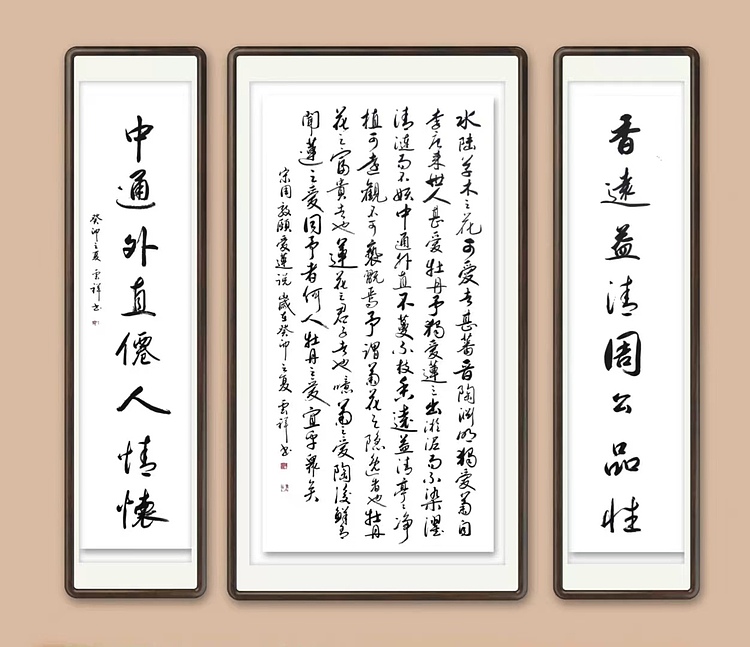 香遠益清周公品性
水陸草木之花可愛者甚蕃晉陶淵明獨愛菊自
李唐来世人甚愛牡丹予獨愛蓮之出淤泥而不染濯
清漣而不妖中通外直不蔓不枝香遠益清亭々净
植可遠觀不可褻翫焉予謂菊花之隱逸者也牡丹
花之富貴者也蓮花之君子者也噫菊之愛陶後鮮有
聞蓮之愛同予者何人牡丹之愛宜乎衆矣
宋周敦頤愛蓮説 歲在癸卯之夏 雲祥书
中通外直僊人情懷
癸卯之夏 雲祥书